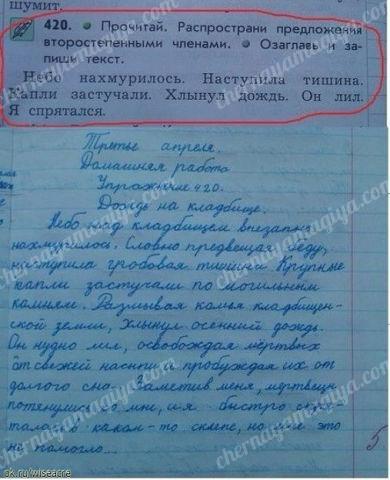 шумит.
420. • Прочитай. Распространи предложения
второстепенными членами. • Озаглавь и за-
пиши текст.
Небо нахмурилось. Наступила тишина.
Капли застучали. Хлынул дождь. Он лил.
Я спрятался.
Третье апреля.
Домашняя работа
Упражнение 420.
Дождь на кладбище.
Небо над кладбищем внезапно
нахмурилось. Словно предвещая беду,
наступила гробовая тишина Крупные
капли застучали по могильным
камням. Размывая комья кладбищен-
ской земли, хлынул осенний дождь.
Он нудно лил, освобождая мёртвых
от свежей насыпи и пробуждая их от
долгого сна. Заметив меня, мертвецы
потянулись ко мне, и я быстро спря-
талась в каком-то склепе, но мне это
не помогло...
5
ok.ru/wiseacre
chernayamagiya.com